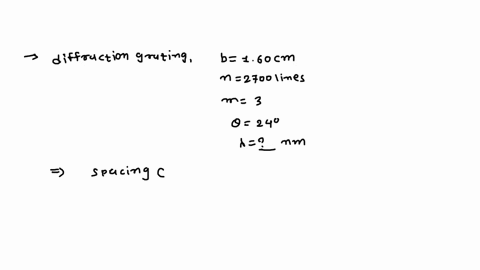 → diffruction gruting, b = 1.60 cm
n = 2700 lines
m = 3
θ = 24°
λ = ? nm
⇒ spacing C